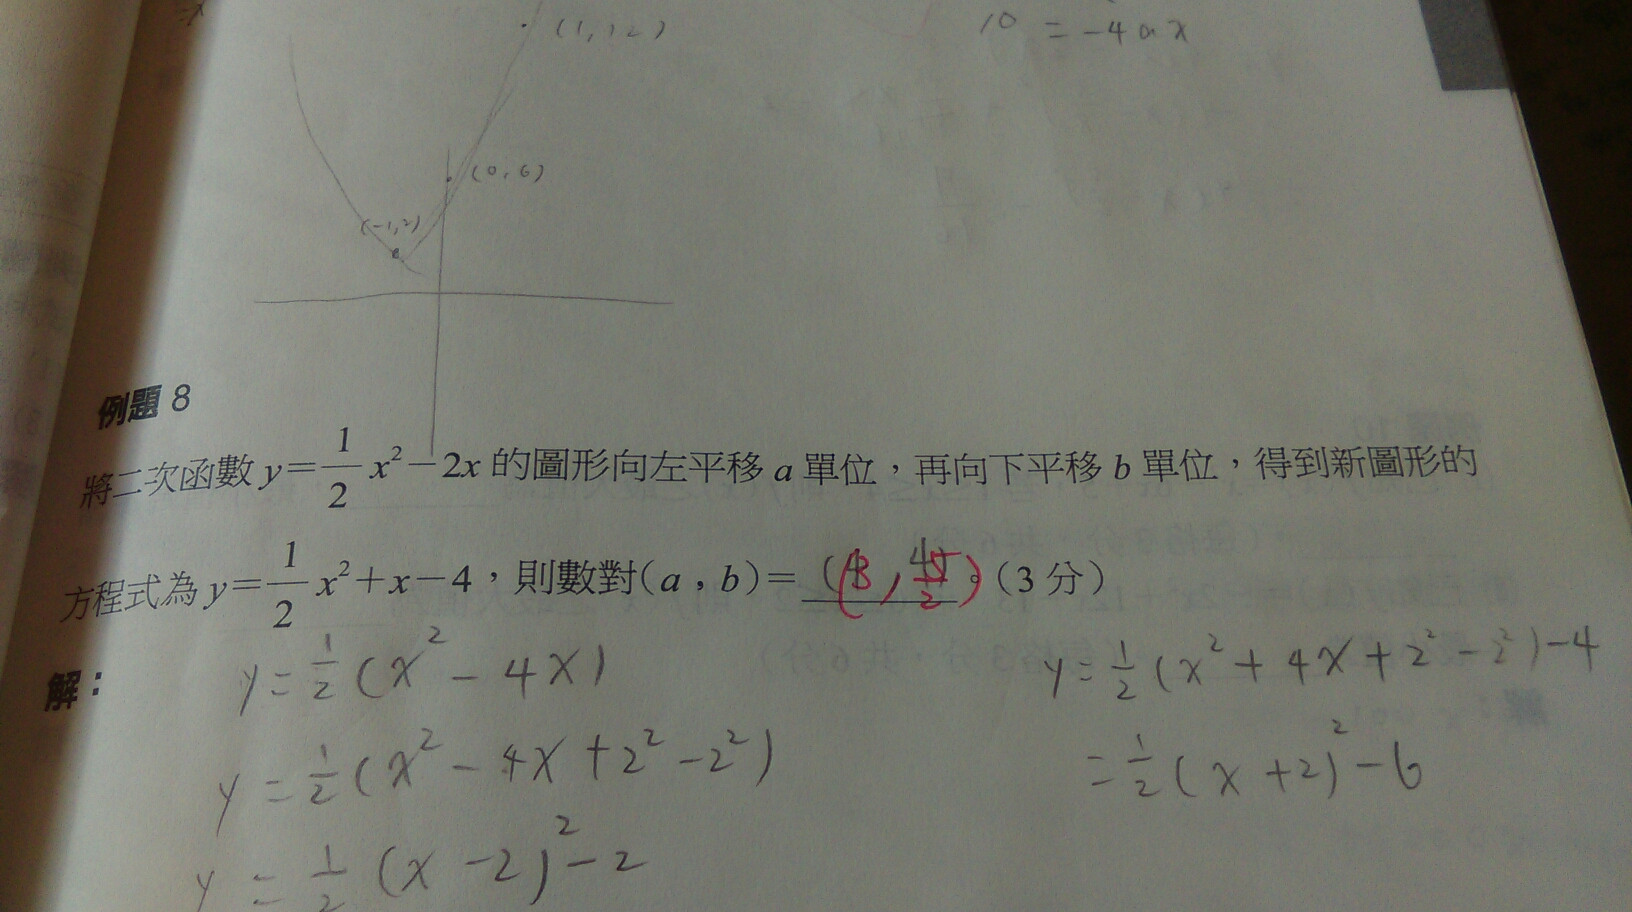 (1,12)
10 = -4ax
(0,6)
(-1,2)
例題 8
將二次函數 y=1/2 x²-2x 的圖形向左平移 a 單位,再向下平移 b 單位,得到新圖形的
方程式為 y=1/2 x²+x-4,則數對(a,b)= (3, 5/2)。(3 分)
解:
y=1/2(x²-4x)
y=1/2(x²-4x+2²-2²)
y=1/2(x-2)²-2
y=1/2(x²+4x+2²-2²)-4
=1/2(x+2)²-6